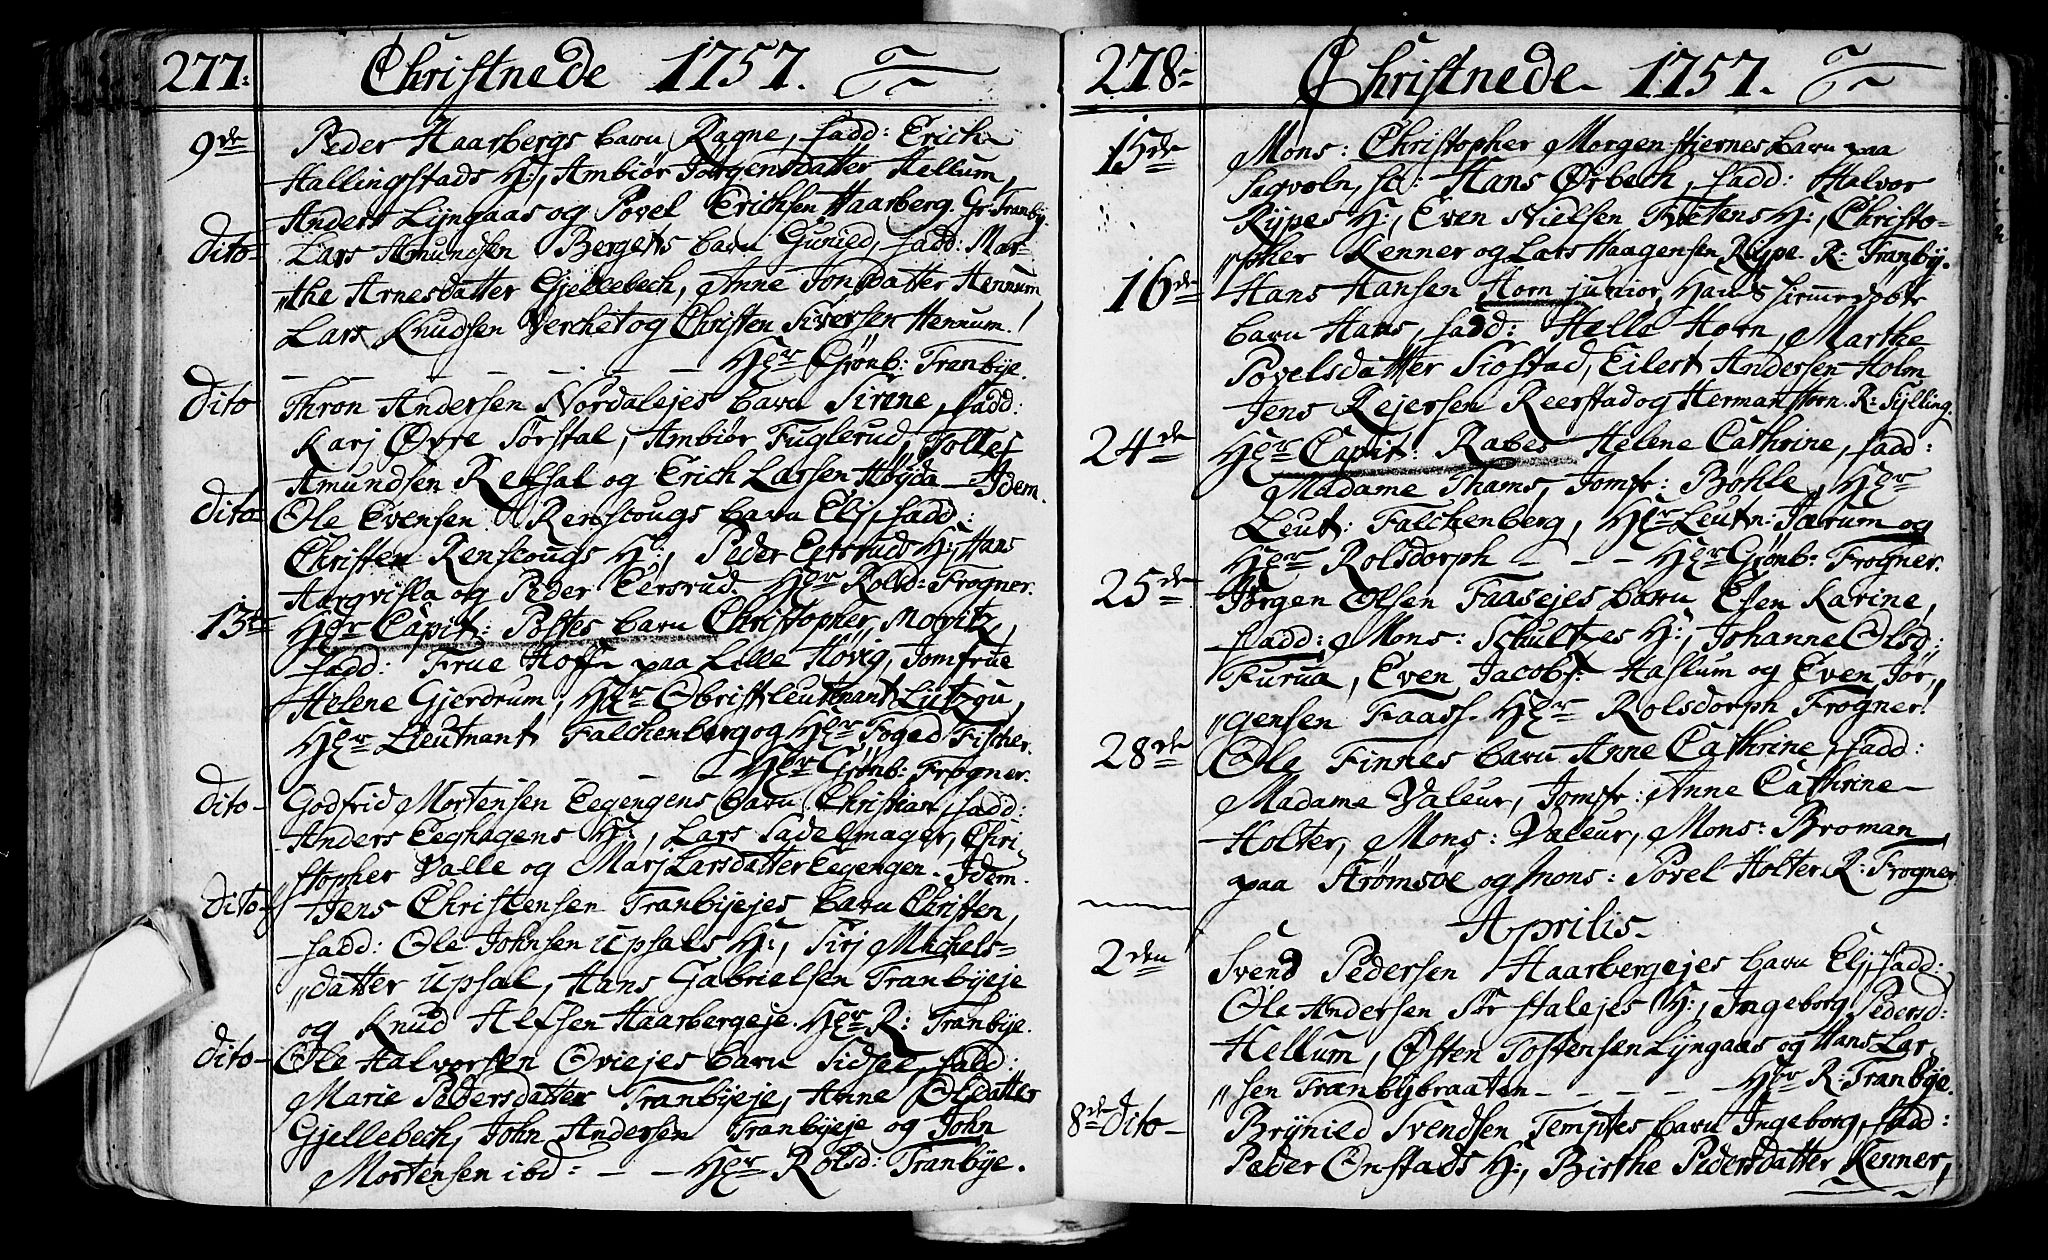 277. Christnede 1757.
9de Peder Haarbergs barn Ragne, fadd: Erich
Hallingstads H:, Ambiør Jørgensdatter Hellum,
Anders Lÿngaas og Povel Erichsen Haarberg. Gr: Tranbÿ.
Dito- Lars Amundsen Bergets barn Gunild, fadd: Mar-
"the Arnesdatter Gjellebech, Anne Jonsdatter Hennum,
Lars Knudsen Verchet og Christen Siversen Hennum.
- - - - - - - Hr Grønb: Tranbÿe.
Dito Thron Andersen Nordalejes barn Sirine, fadd:
Karj Øvre Sørstal, Ambiør Fuglerud, Tollef
Amundsen Refsal og Erich Larsen Høÿda - Idem.
Dito- Ole Evensen Renscougs barn Elj, fadd:
Christen Renscougs H:, Peder Eersruds H:, Hans
Aargvilla og Peder Eersrud. Hr Rolsd: Frogner.
13te Hr Capit: Postes barn Christopher Moritz,
fadd: Frue Hoff paa Lille Høvig, Jomfrue
Helene Gjerdrum, Hr Obristleutnant Lützou,
Hr Lieutnant Falchenberg og Hr Foged Fischer.
- - Hr Grønb: Frogner.
Dito- Godfrid Mortensen Eegengens barn Christian, fadd:
Anders Eeghagens H:, Lars Sadelmager, Chri-
stopher Valle og Marj Larsdatter Eegengen - Idem.
Dito- Jens Christensen Tranbÿejes barn Christen,
fadd: Ole Johnsen Upsals H:, Sirj Michels-
"datter Upsal, Hans Gabrielsen Tranbÿeje
og Knud Alfsen Haarbergeje. Hr R: Tranbÿe.
Dito- Ole Halvorsen Oviejes barn Sidsel, fadd:
Marie Pedersdatter Tranbÿeje, Anne Olsdatter
Gjellebech, John Andersen Tranbÿeje og John
Mortensen ibd: - - Hr Rolsd: Tranbÿe.
278- Christnede- 1757.
15de Mons: Christopher Morgenstiernes barn paa
Sagvoln, Hans Ørbech, fadd: Halvor
Rÿpes H:, Even Nielsen Tvetens H:, Christo-
"pher Kenner og Lars Haagensen Rÿpe. R: Tranbÿ.
16de Hans Hansen Horn junior, Hans hiemedøbte
barn Hans, fadd: Helle Horn, Marthe
Povelsdatter Siøstad, Eilert Andersen Holm
Jens Rejersen Reerstad og Herman Horn. R: Sÿlling.
24de Hr Capit: Rabes Helene Cathrine, fadd:
Madame Thams, Jomfr: Bøhle, Hr
Leut: Falchenberg, Hr Leutn: Jærum og
Hr Rolsdorph - - - Hr Grønb: Frogner.
25de Jørgen Olsen Faasejes barn Elen Karine,
fadd: Mons: Schultzes H:, Johanne Olsd:
Furua, Even Jacobs: Haslum og Even Jør-
"gensen Faass. Hr Rolsdorph Frogner.
28de Ole Finnes barn Anne Cathrine, fadd:
Madame Valeur, Jomfr: Anne Cathrine
Holter, Mons: Valeur, Mons: Broman
paa Strømsøe og Mons: Povel Holter. R: Frogner
Aprilis-
2den Svend Pedersen Haarbergejes barn Elj, fadd:
Ole Andersen Sørstalejes H:, Ingeborg Pedersd:
Hellum, Østen Tostensen Lÿngaas og Hans Lar
"sen Tranbÿbraaten - - - - Hr R: Tranbÿe.
8de Dito- Brÿnild Svendsen Temptes barn Ingeborg, fadd:
Peder Onstads H:, Birthe Pedersdatter Kenner,